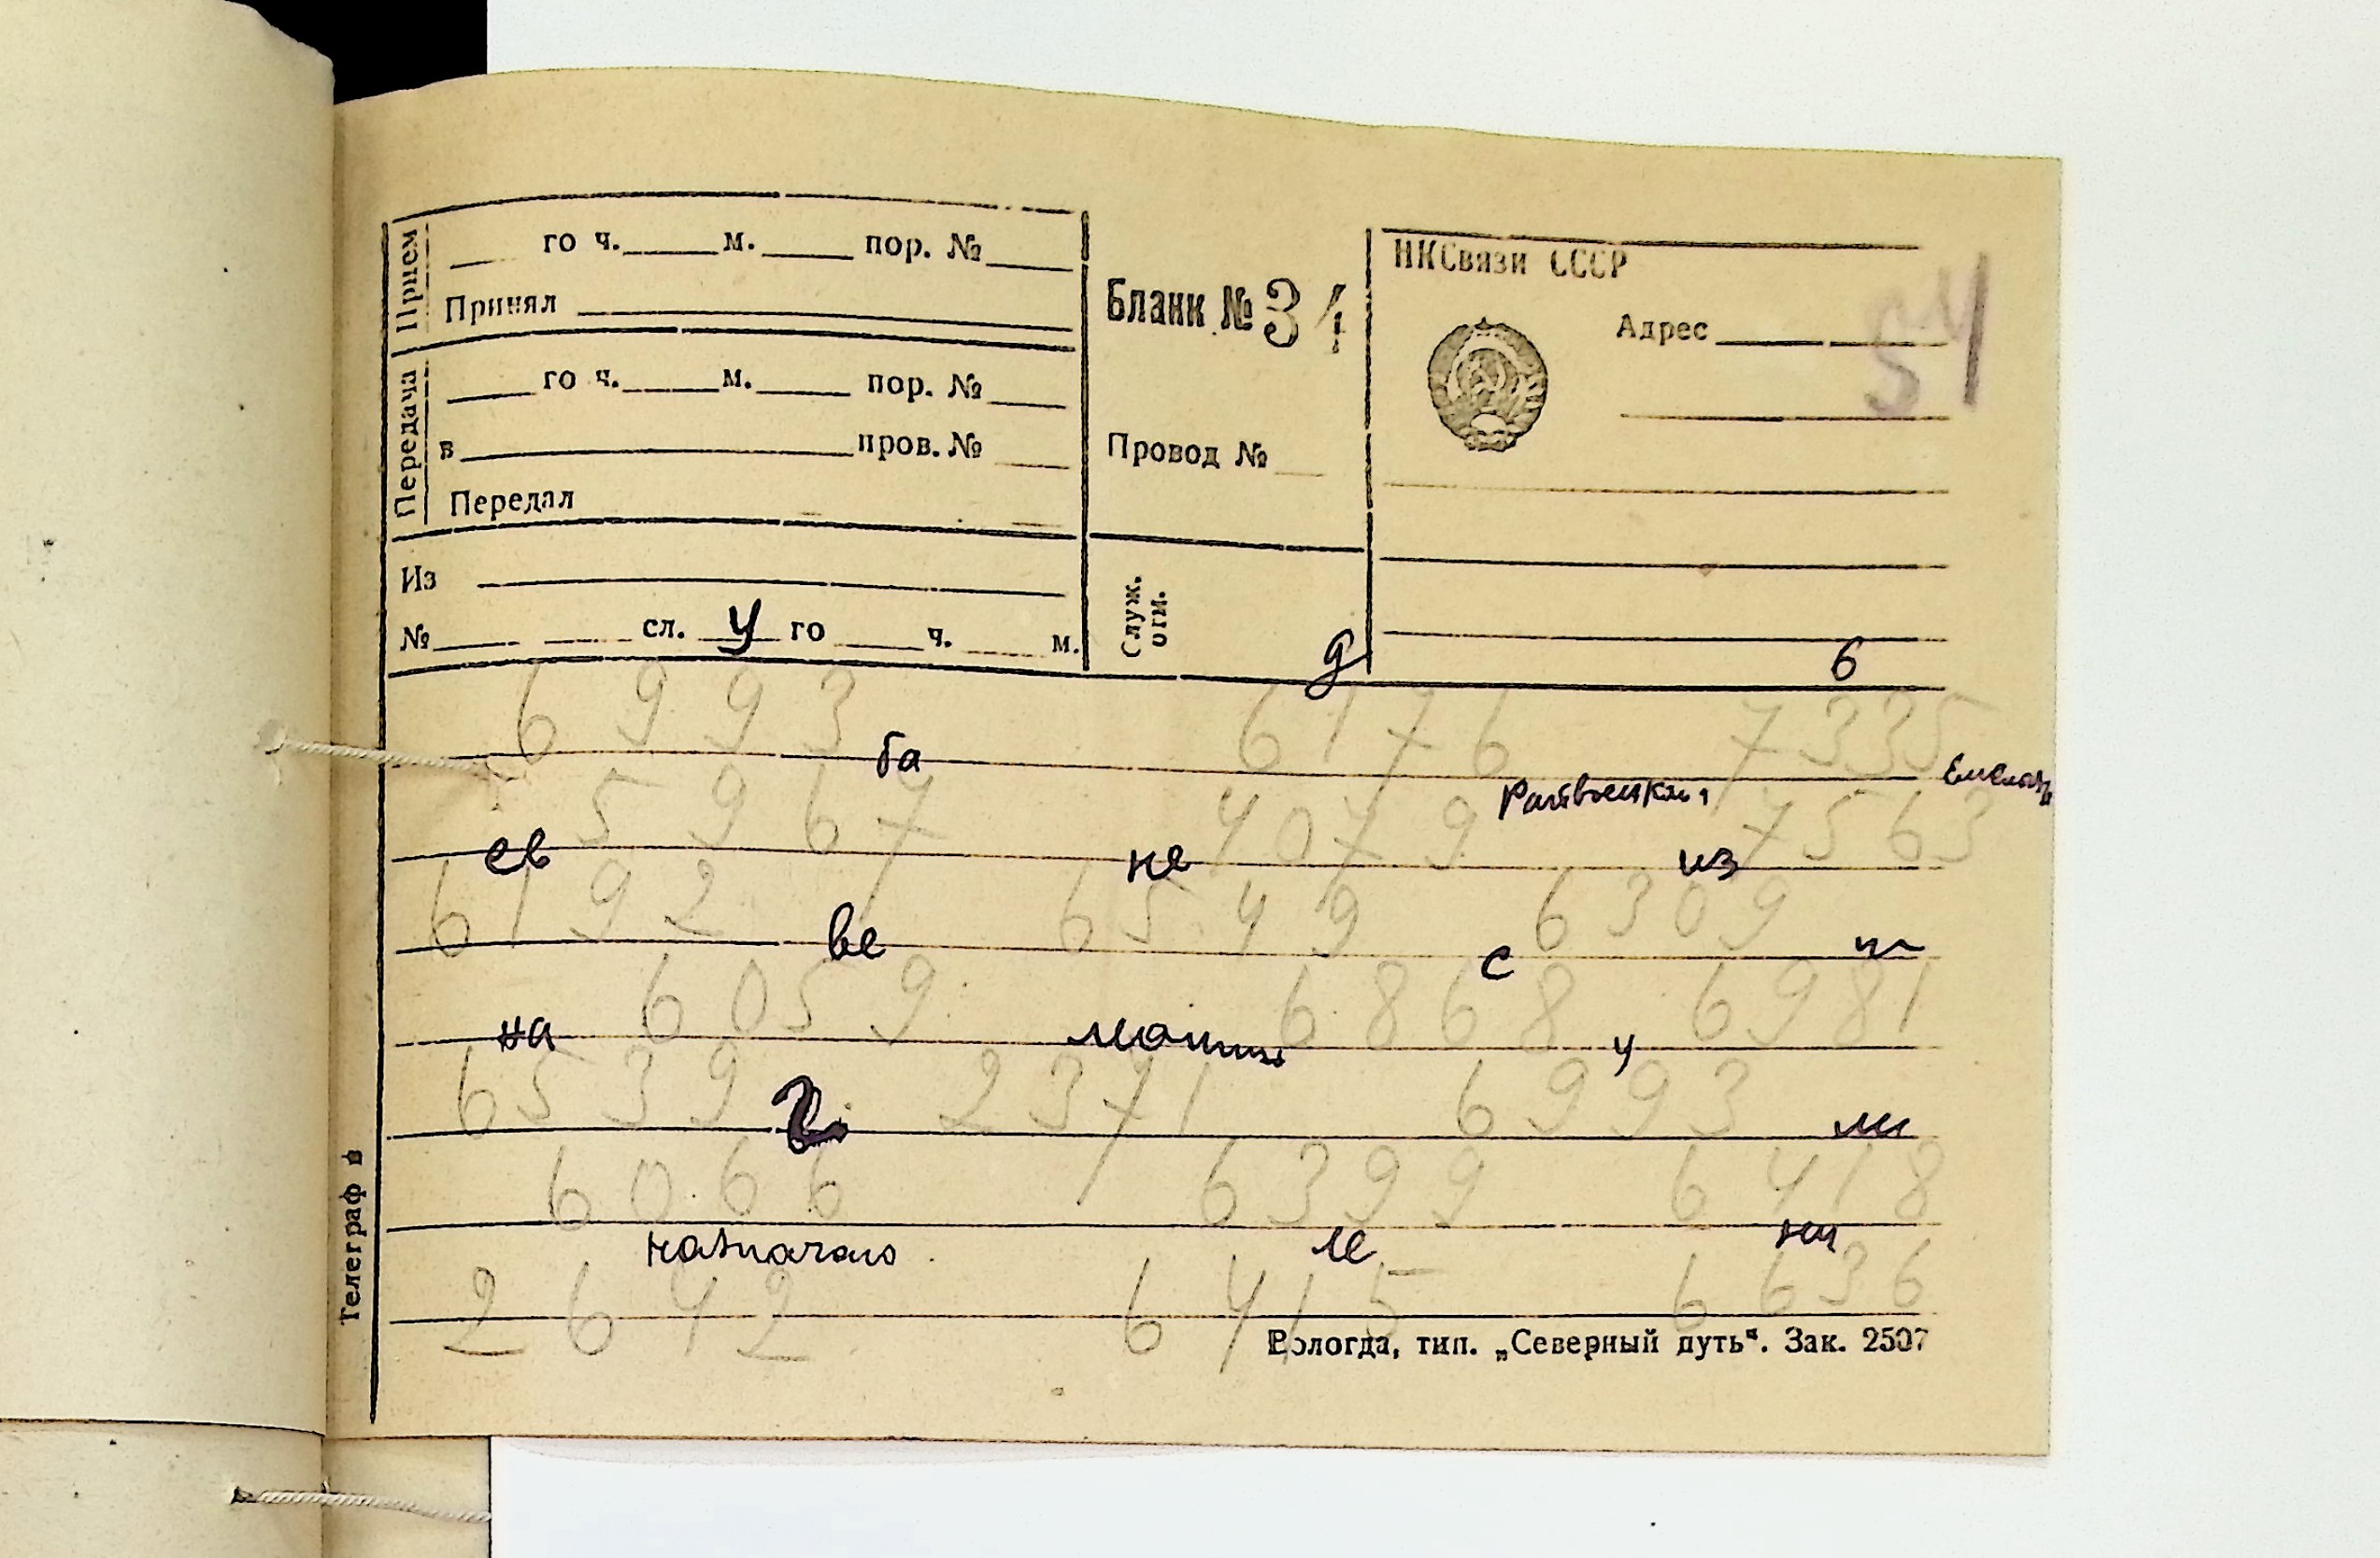 го ч. м. пор. №
Прием
Принял
Бланк № 34
НКСвязи СССР
Адрес
54
го ч. м. пор. №
Передача
в пров. №
Провод №
Передал
Из
Служ. отм.
№ сл. у го ч. м.
д в
6993 6176 7335
ба
5967 4079 7563
ев не из
6192 6549 6309
ве с
6059 6868 6981
на у
6539 2371 6993
ли
6066 6399 6418
назначаю ле
2642 6415 6636
Телеграф в
Вологда, тип. „Северный путь“. Зак. 2507